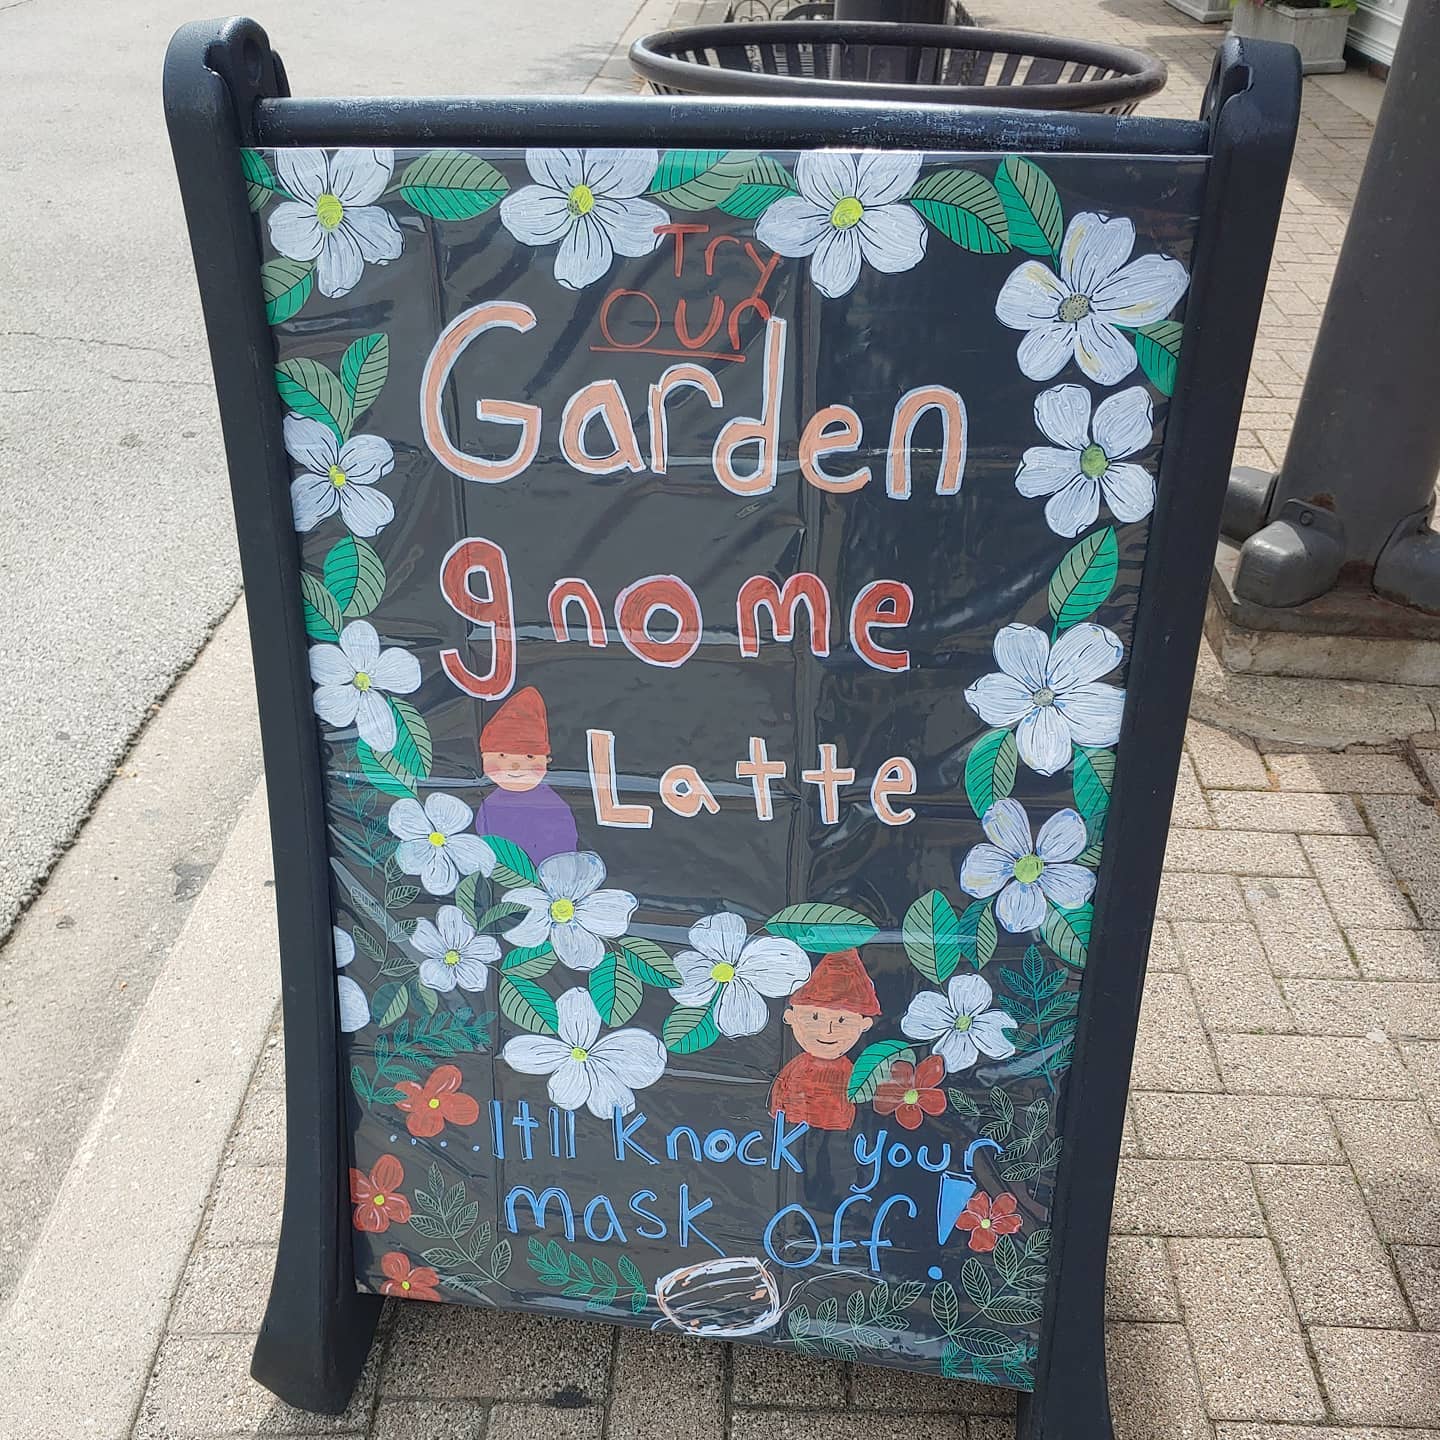 Try
our
Garden
gnome
Latte
....It'll knock your
mask off!